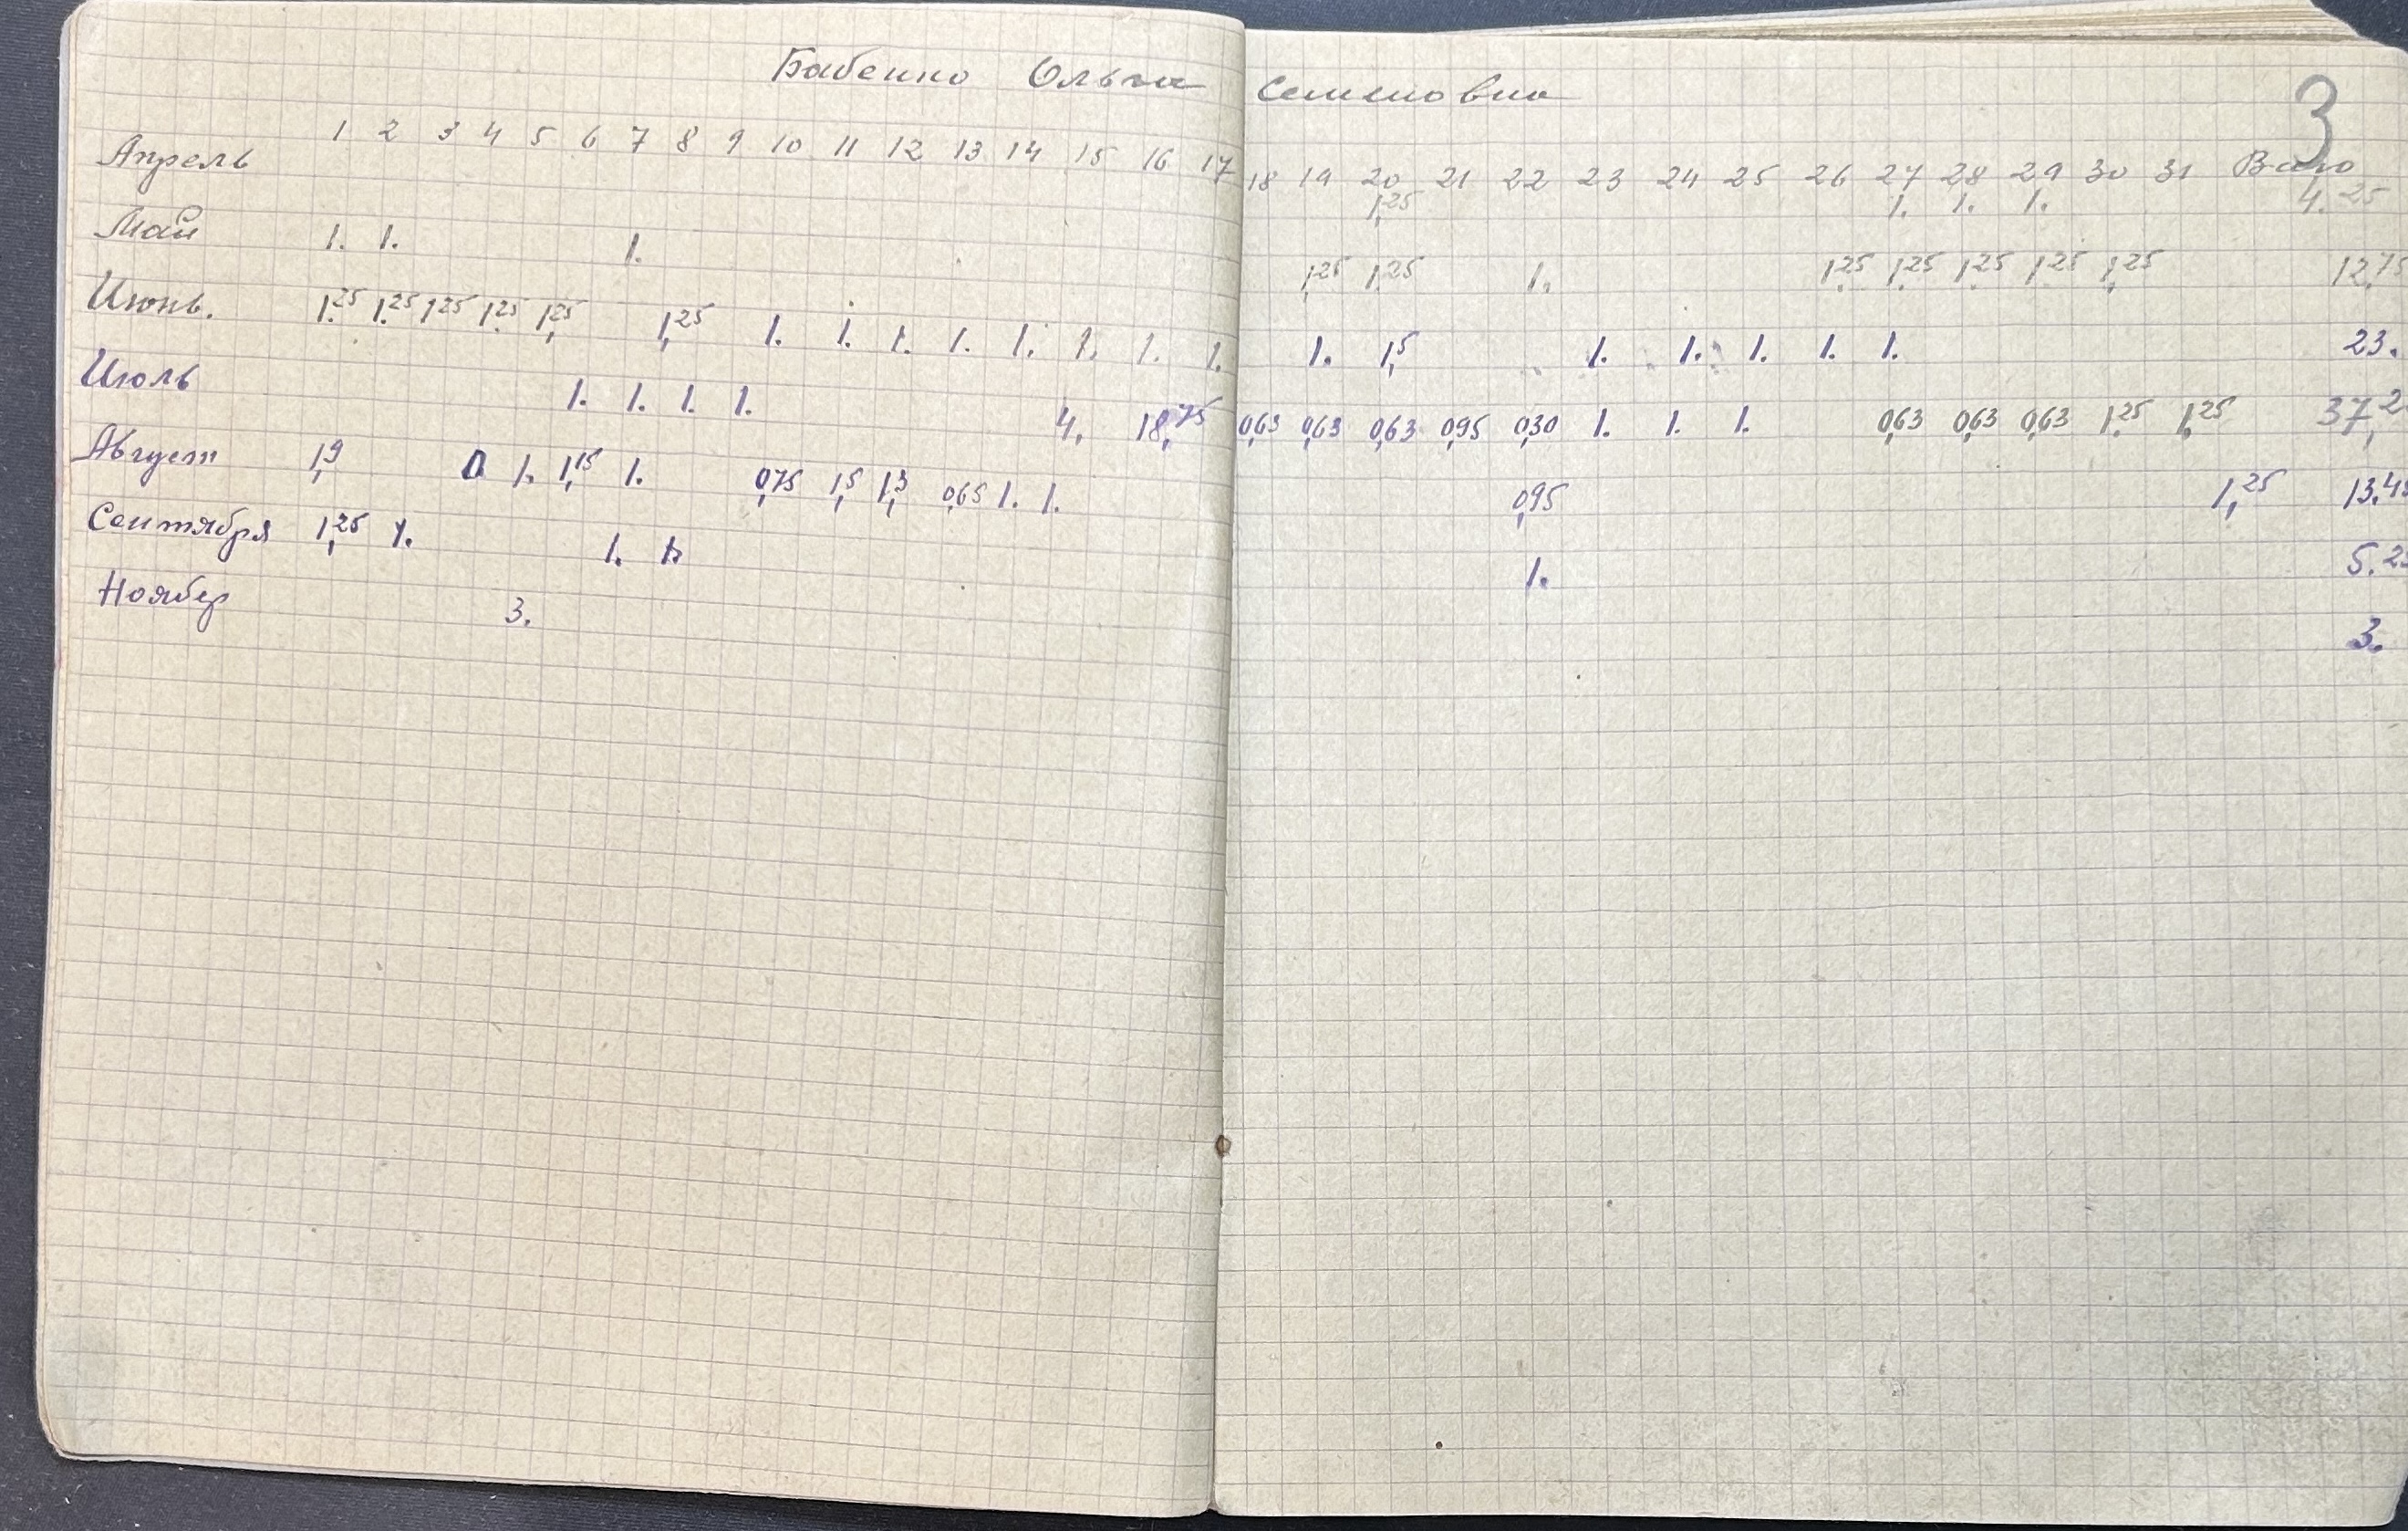 Бабенко Ольга Семеновна
3
Апрель 1 2 3 4 5 6 7 8 9 10 11 12 13 14 15 16 17 18 19 20 21 22 23 24 25 26 27 28 29 30 31
1,25 1. 1. 1. 4.25
Май 1. 1. 1. 1,25 1,25 1. 1,25 1,25 1,25 1,25 1,25 12,75
Июнь. 1.25 1.25 1.25 1.25 1,25 1,25 1. 1. 1. 1. 1. 1. 1. 1. 1. 1,5 1. 1. 1. 1. 1. 23.
Июль 1. 1. 1. 1. 4. 18,75 0,63 0,63 0,63 0,95 0,30 1. 1. 1. 0,63 0,63 0,63 1,25 1,25 37,2
Август 1,9 0 1. 1,15 1. 0,75 1,5 1,3 0,65 1. 1. 0,95 1,25 13.45
Сентября 1,25 1. 1. 1. 1. 5.25
Ноябер 3. 3.